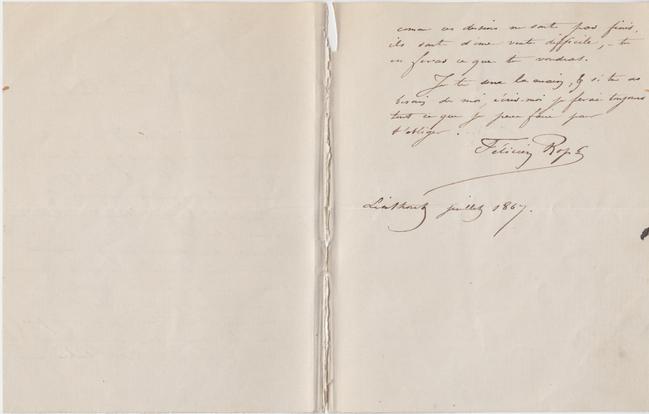 comme ces dessins ne sont pas finis,
ils sont d'une vente difficile, - tu
en feras ce que tu voudras.
Je te serre la main, & si tu as
besoin de moi, écris-moi je ferai toujours
tout ce que je peux faire pour
t'obliger.
Félicien Rops
juillet 1867.